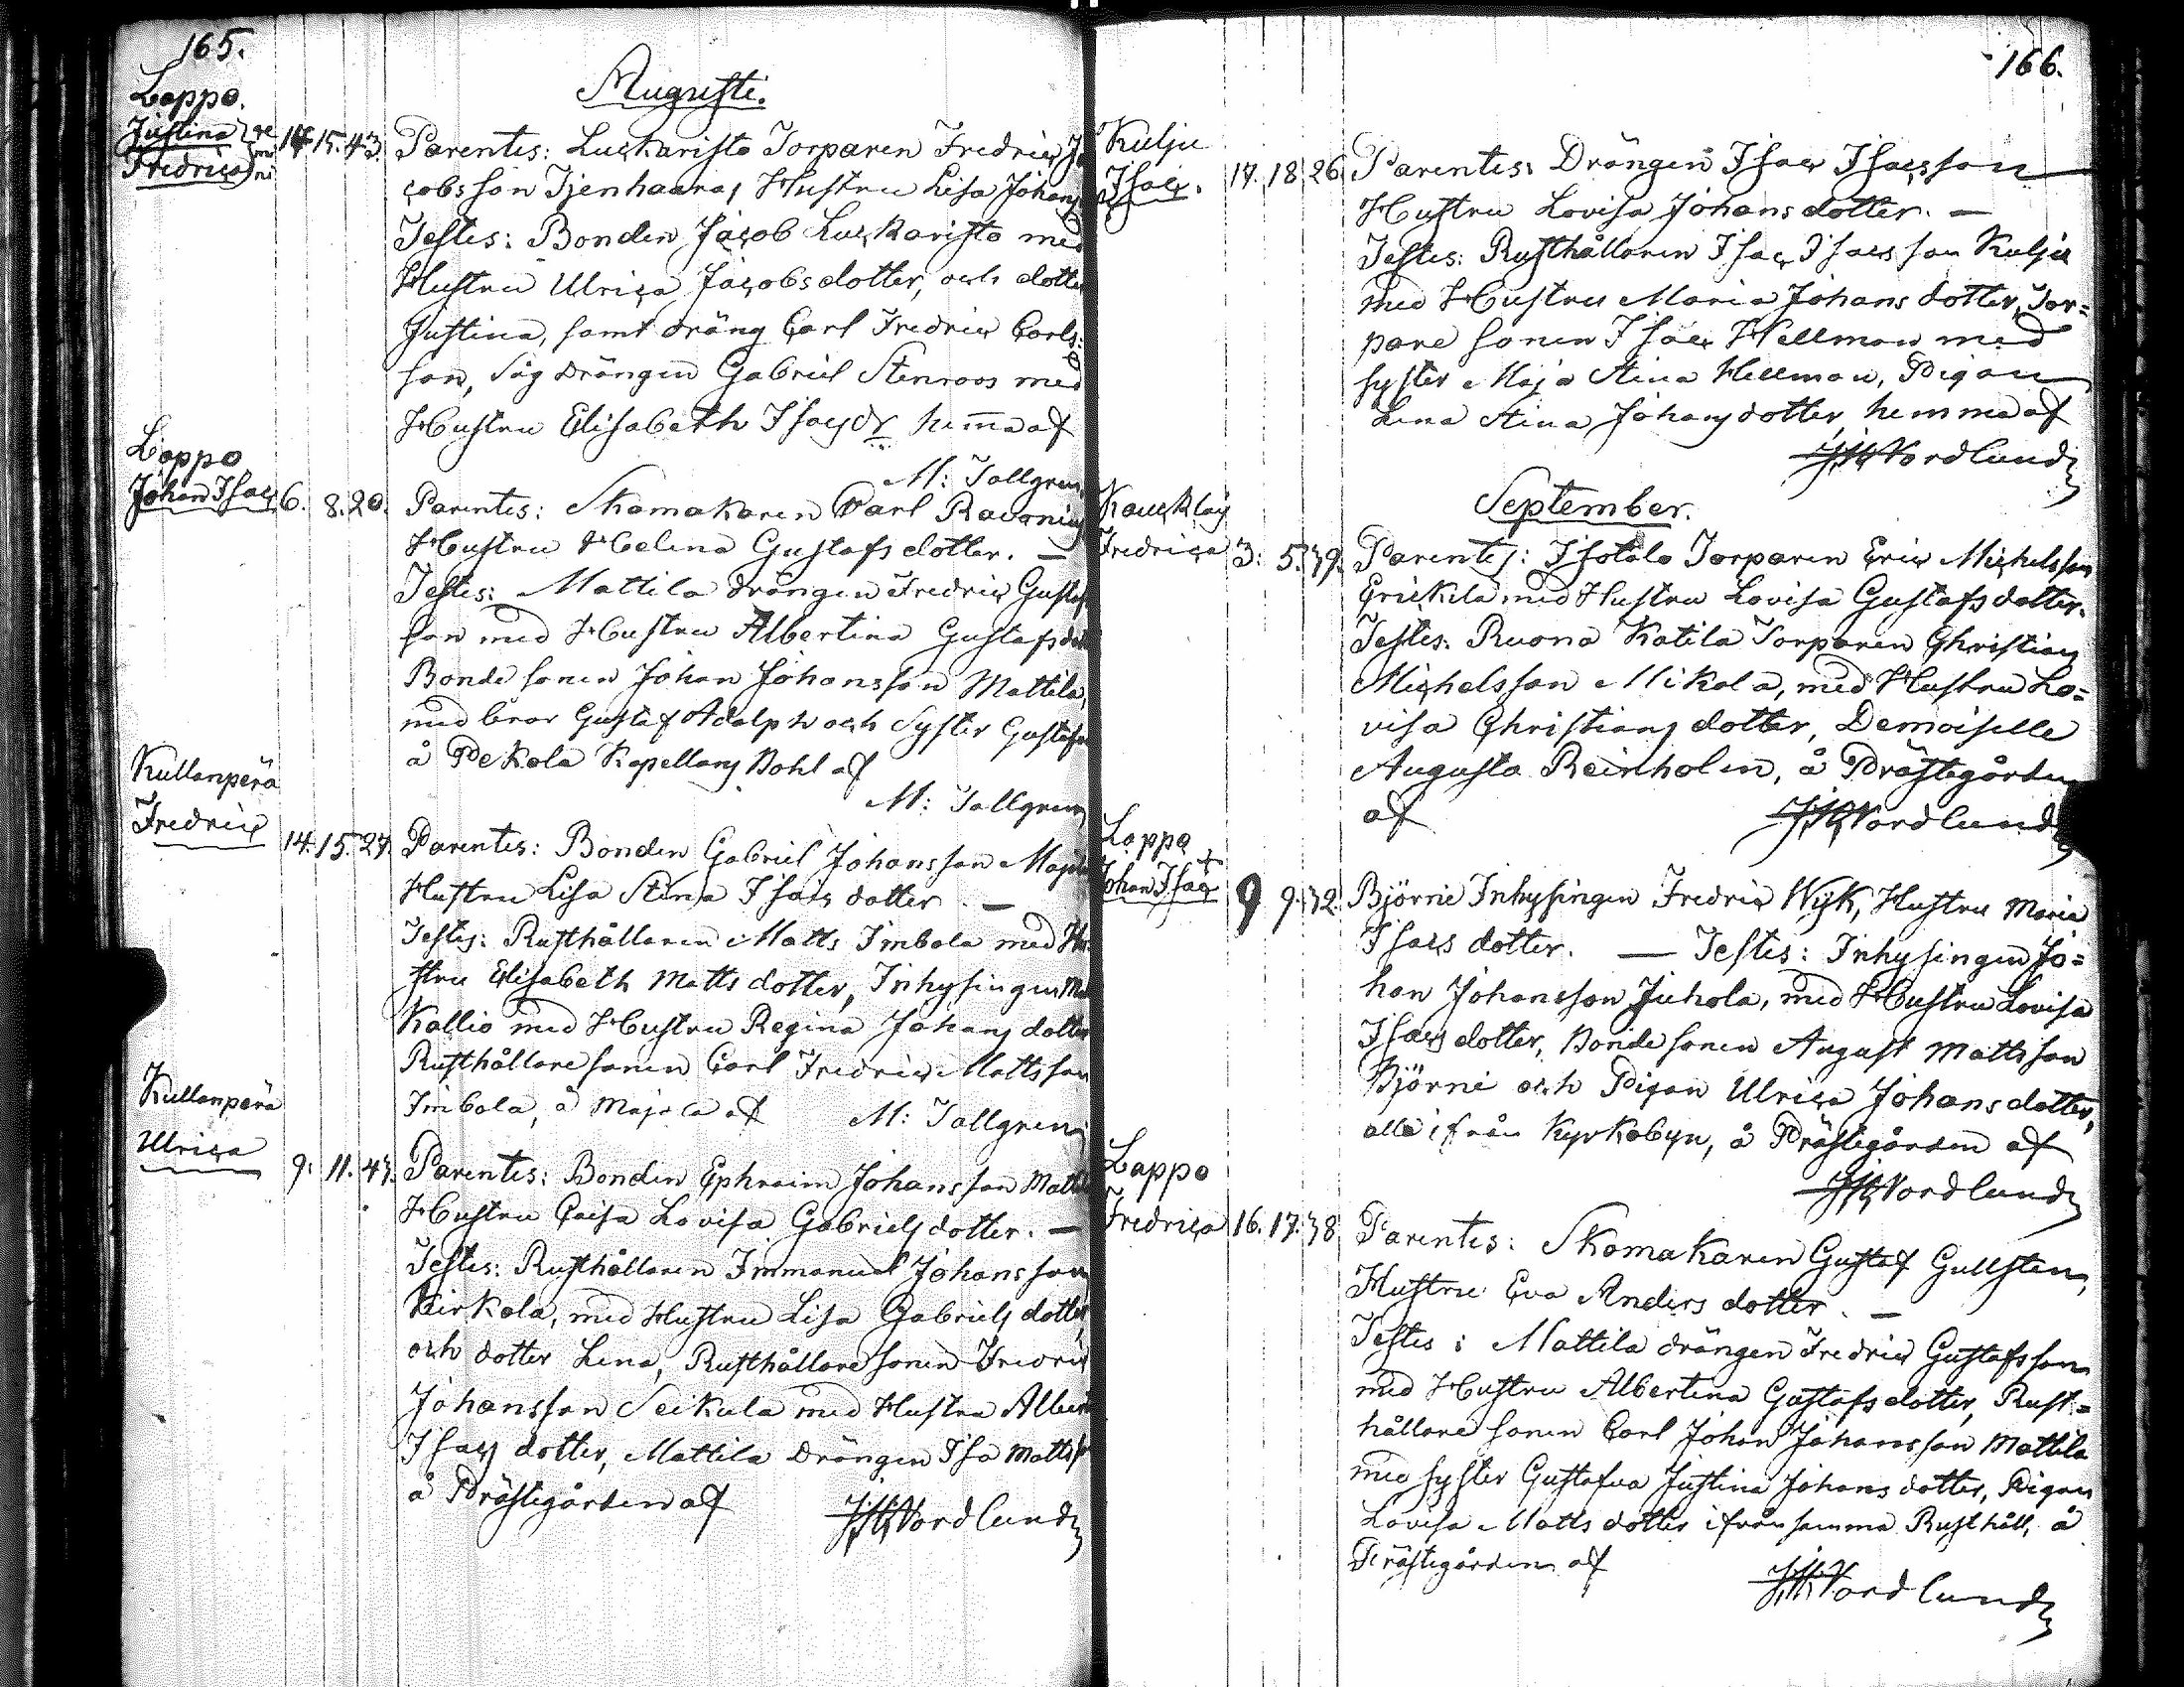 165.
Augusti.
Lappo.
Justina } ge
Fredrica } mi
ni
14. 15. 43. Parentes: Luckaristo Torparen Fredric Ja
cobsson Tjenhaara, Hustru Lisa Johans
Testes: Bonden Jacob Luckaristo med
Hustru Ulrica Jacobsdotter, och dotter
Justina, samt dräng Carl Fredric Carls=
son, Såg drängen Gabriel Stenroos med
Hustru Elisabeth Isacsdr hem̄a af
M: Tallgren
Lappo
Johan Isac 6. 8. 20. Parentes: Skomakaren Carl Ravonius
Hustru Helena Gustafsdotter. —
Testes: Mattila drängen Fredric Gustaf
son med Hustru Albertina Gustafsdot
Bonde sonen Johan Johansson Mattila,
med bror Gustaf Adolph och Syster Gustafva
å Pekola Kapellans Bohl af
M: Tallgren
Kullanperä
Fredric
14. 15. 27. Parentes: Bonden Gabriel Johansson Majola
Hustru Lisa Stina Isacs dotter. —
Testes: Rusthållaren Matts Imbola med Hu
stru Elisabeth Matts dotter, Inhysingen Ma
Kallio med Hustru Regina Johans dotter
Rusthållare sonen Carl Fredric Mattsson
Imbola, å Majola af M: Tallgren
Kullanperä
Ulrica
9. 11. 43. Parentes: Bonden Ephraim Johansson Matti
Hustru Caisa Lovisa Gabriels dotter. —
Testes: Rusthållaren Immanuel Johansson
Keirkola, med Hustru Lisa Gabriels dotter,
och dotter Lena, Rusthållare sonen Fredric
Johansson Seikula med Hustru Albert
Isacs dotter, Mattila Drängen Isa Mattss
å Prästegården af JH Nordlund
166.
Kulju
Isac. 17. 18. 26. Parentes: Drängen Isac Isacsson —
Hustru Lovisa Johansdotter. —
Testes: Rusthållaren Isac Isacsson Kulju
med Hustru Maria Johans dotter, Tor=
pare sonen Isac Hellman med
syster Maja Stina Hellman, Pigan
Lena Stina Johans dotter, hemma af
JH Nordlund
September.
Kaucklaj
Fredrica 3. 5. 39. Parentes: Isotalo Torparen Eric Michelsson
Erickila med Hustru Lovisa Gustafs dotter.
Testes: Ruona Katila Torparen Christian
Michelsson Mikola, med Hustru Lo=
visa Christians dotter, Demoiselle
Augusta Reinholm, å Prästegården
af JH Nordlund
Lappo +
Johan Isac 9 9. 32. Björni Inhysingen Fredric Wijk, Hustru Maria
Isacs dotter. — Testes: Inhysingen Jo=
han Johansson Juhola, med Hustru Lovisa
Isacs dotter, Bonde sonen August Mattsson
Björni och Pigan Ulrica Johans dotter,
alla ifrån Kyrkobyn, å Prästegården af
JH Nordlund
Lappo
Fredrica 16. 17. 38. Parentes: Skomakaren Gustaf Gullsten,
Hustru Eva Anders dotter. —
Testes: Mattila drängen Fredric Gustafsson
med Hustru Albertina Gustafs dotter, Rust=
hållare sonen Carl Johan Johansson Mattila
med syster Gustafva Justina Johans dotter, Pigan
Lovisa Matts dotter ifrån samma Rusthåll, å
Prästegården af JH Nordlund